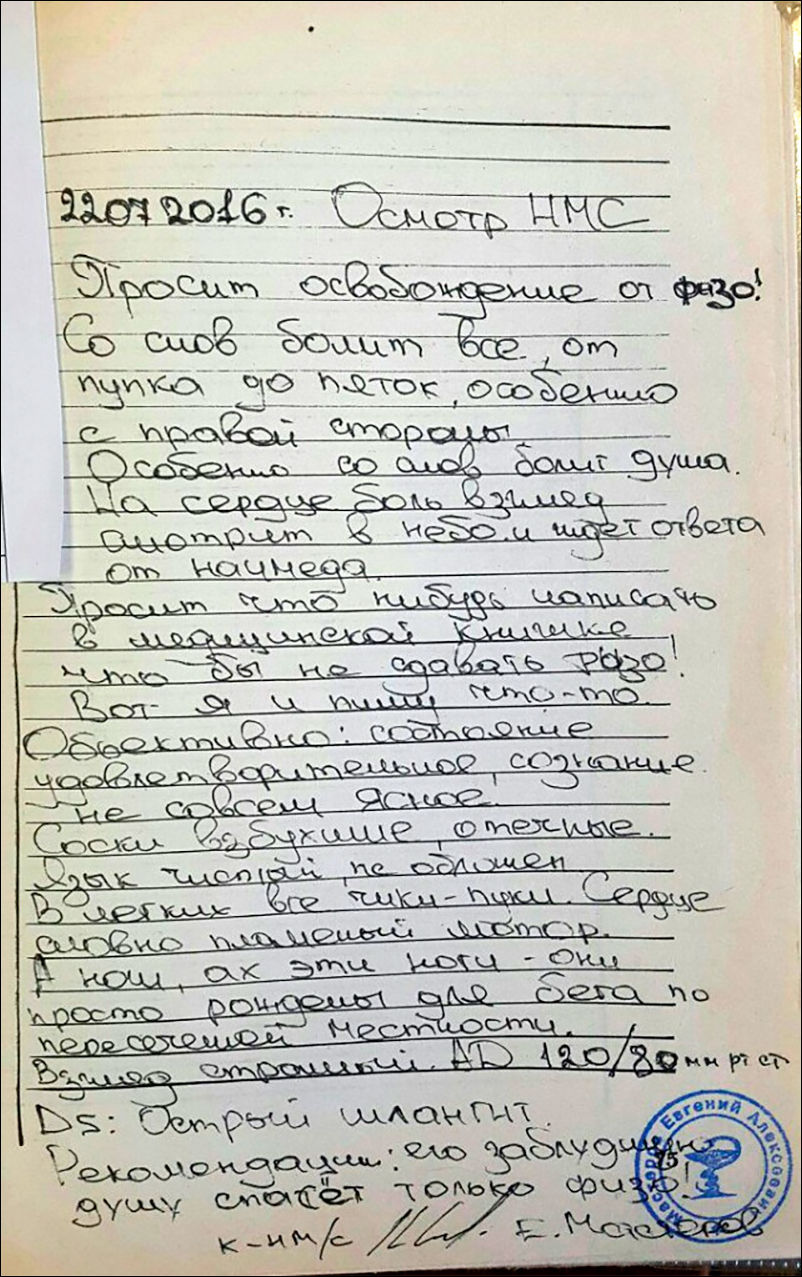 22072016 г. Осмотр НМС
Просит освобождение от физо!
Со слов болит все, от
пупка до пяток, особенно
с правой стороны
Особенно со слов болит душа.
На сердце боль взгляд
смотрит в небо и ждет ответа
от начмеда.
Просит что нибудь написать
в медицинской книжке
что бы не сдавать физо!
Вот я и пишу что-то.
Объективно: состояние
удовлетворительное, сознание
не совсем ясное.
Соски взбухшие, отечные.
Язык чистый, не обложен
В легких все чики-пуки. Сердце
словно пламеный мотор.
А ноги, ах эти ноги - они
просто рождены для бега по
пересеченой местности.
Взгляд странный. AD 120/80 мм рт ст
Ds: Острый шлангит.
Рекомендации: его заблудшую
душу спасёт только физо!
к-нм/с Е.
Евгений Александрович